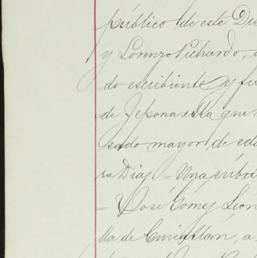 público de este Dis
y Lorenzo Pichardo, a
do escribiente y fir
de Jepona ella que
sado mayor de eda
ra Diaz - Una rúbri
- José Gomes Leon
lla de Cuicatlán, a